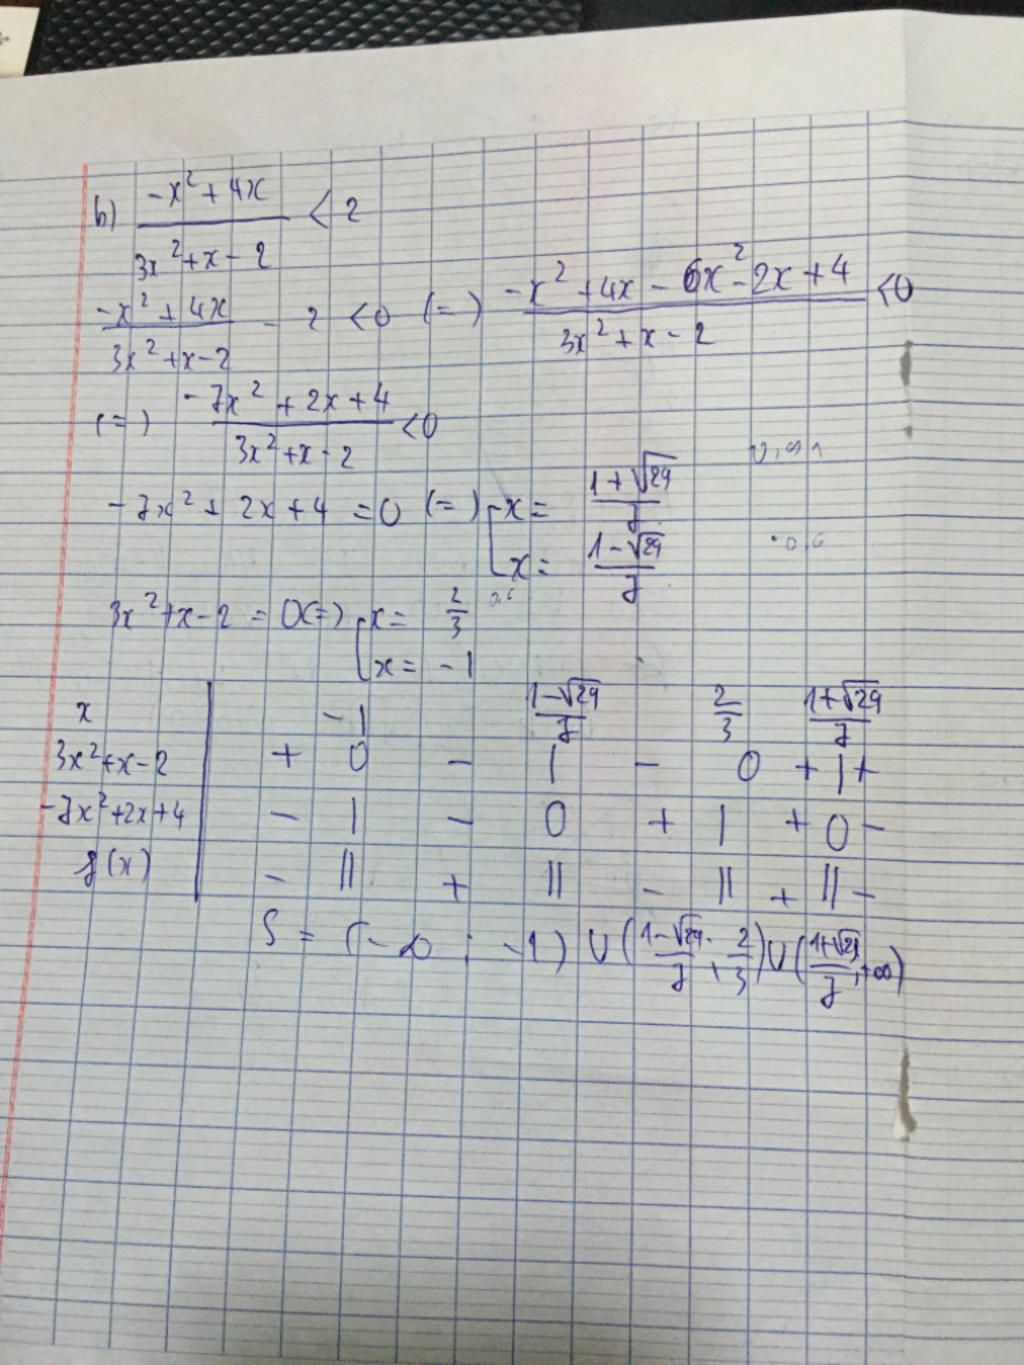 b) (-x² + 4x)/(3x² + x - 2) < 2
(-x² + 4x)/(3x² + x - 2) - 2 < 0 (=) (-x² + 4x - 6x² - 2x + 4)/(3x² + x - 2) < 0
(=) (-7x² + 2x + 4)/(3x² + x - 2) < 0
-7x² + 2x + 4 = 0 (=) [ x = (1+√29)/7
x = (1-√29)/7
3x² + x - 2 = 0 (=) [ x = 2/3
x = -1
x | -1 (1-√29)/7 2/3 (1+√29)/7
3x² + x - 2 | + 0 - | - 0 + | +
-7x² + 2x + 4 | - | - 0 + | + 0 -
f(x) | - || + || - || + || -
S = (-∞ ; -1) ∪ ((1-√29)/7 ; 2/3) ∪ ((1+√29)/7 ; +∞)